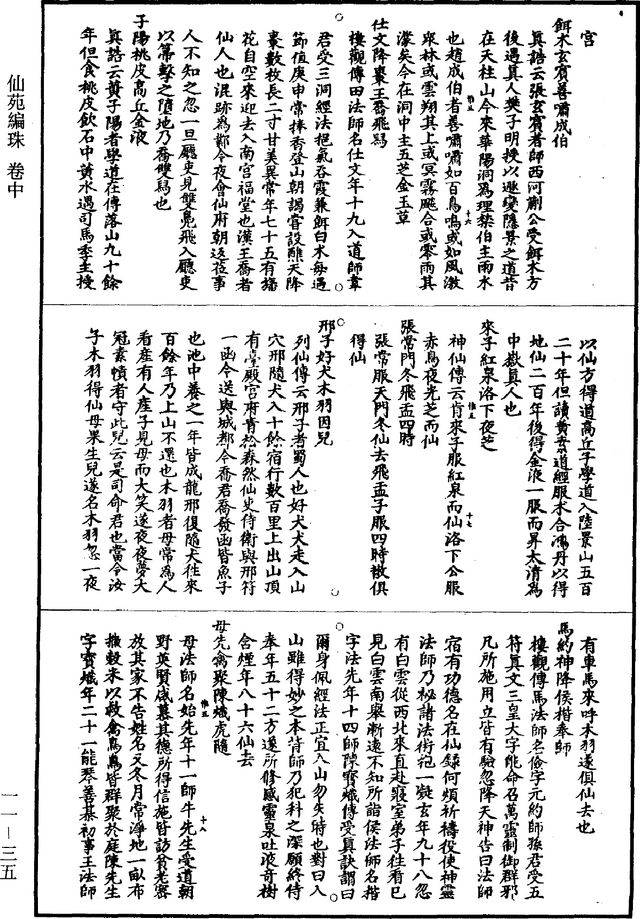 宮
餌朮玄賓善嘯成伯
真誥云張玄賓者師西河薊公受餌朮方
後遇真人樊子明授以遯變隱景之道昔
在天柱山今來華陽洞為理禁伯主雨水
也趙成伯者善嘯嘯如百鳥鳴或如風激
衆林或雲翔其上或冥霧飈合或零雨其
濛矣今在洞中主五芝金玉草
仕文降棗王喬飛舄
樓觀傳田法師名仕文年十九入道師韋
君受三洞經法挹氣吞霞兼餌白朮每遇
節值庚申常捧香登山朝謁嘗設醮天降
棗數枚長二寸甘美異常年七十五有旛
花自空來迎去入南宮福堂也漢王喬者
仙人也混跡為鄴令夜會仙府朝返蒞事
人不知之忽一旦廳吏見雙鳧飛入廳吏
以箒擊之墮地乃喬雙舄也
子陽桃皮高丘金液
真誥云黃子陽者學道在傅落山九十餘
年但食桃皮飲石中黃水遇司馬季主授
以仙方得道高丘子學道入陸景山五百
二十年但讀黃素道經服朮合鴻丹以得
地仙二百年後得金液一服而昇太清為
中嶽真人也
來子紅泉洛下夜芝
神仙傳云肯來子服紅泉而仙洛下公服
赤烏夜光芝而仙
張常門冬飛盂四時
張常服天門冬仙去飛盂子服四時散俱
得仙
邢子好犬木羽因兒
列仙傳云邢子者蜀人也好犬犬走入山
穴邢隨犬入十餘宿行數百里上出山頂
有臺殿宮府青松森然仙吏侍衛與邢符
一函令送與城都令喬君喬發函皆魚子
也池中養之一年皆成龍邢復隨犬往來
百餘年乃上山不還也木羽者母常為人
看產有人產子見母而大笑遂夜夜夢大
冠素幘者守此兒云是司命君也當令汝
子木羽得仙母果生兒遂名木羽忽一夜
有車馬來呼木羽遂俱仙去也
馬約神降侯楷奉師
樓觀傳馬法師名儉字元約師孫君受五
符真文三皇大字能命召萬靈制御群邪
凡所施用立皆有驗忽降天神告曰法師
宿有功德名在仙錄何煩祈禱役使神靈
法師乃秘諸法術抱一凝玄年九十八忽
有白雲從西北來直赴寢室弟子往看已
見白雲南舉漸遠不知所詣侯法師名楷
字法先年十四師陳寶熾傳受真訣謂曰
爾身佩經法正宜入山勿失時也對曰入
山雖得妙之本背師乃犯科之深願終侍
奉年五十二方遂所修感靈泉吐液奇樹
含煙年八十六仙去
母先禽聚陳熾虎隨
母法師名始先年十一師牛先生受道朝
野英賢咸慕其德所得信施皆訪貧老密
放其家不告姓名又冬月常淨地一畝布
撒穀米以救禽鳥鳥皆群聚於庭陳先生
字寶熾年二十一能琴善棊初事王法師
仙苑編珠 卷中
一一－三五